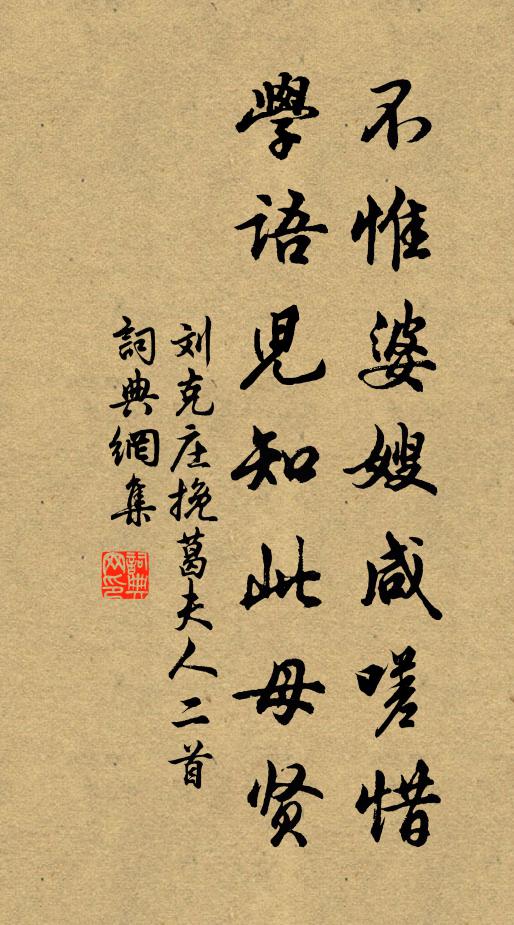 不惟婆嫂咸嗟惜
學語児知此母贤
刘克庄挽葛夫人二首
詞典網集
詞典网印